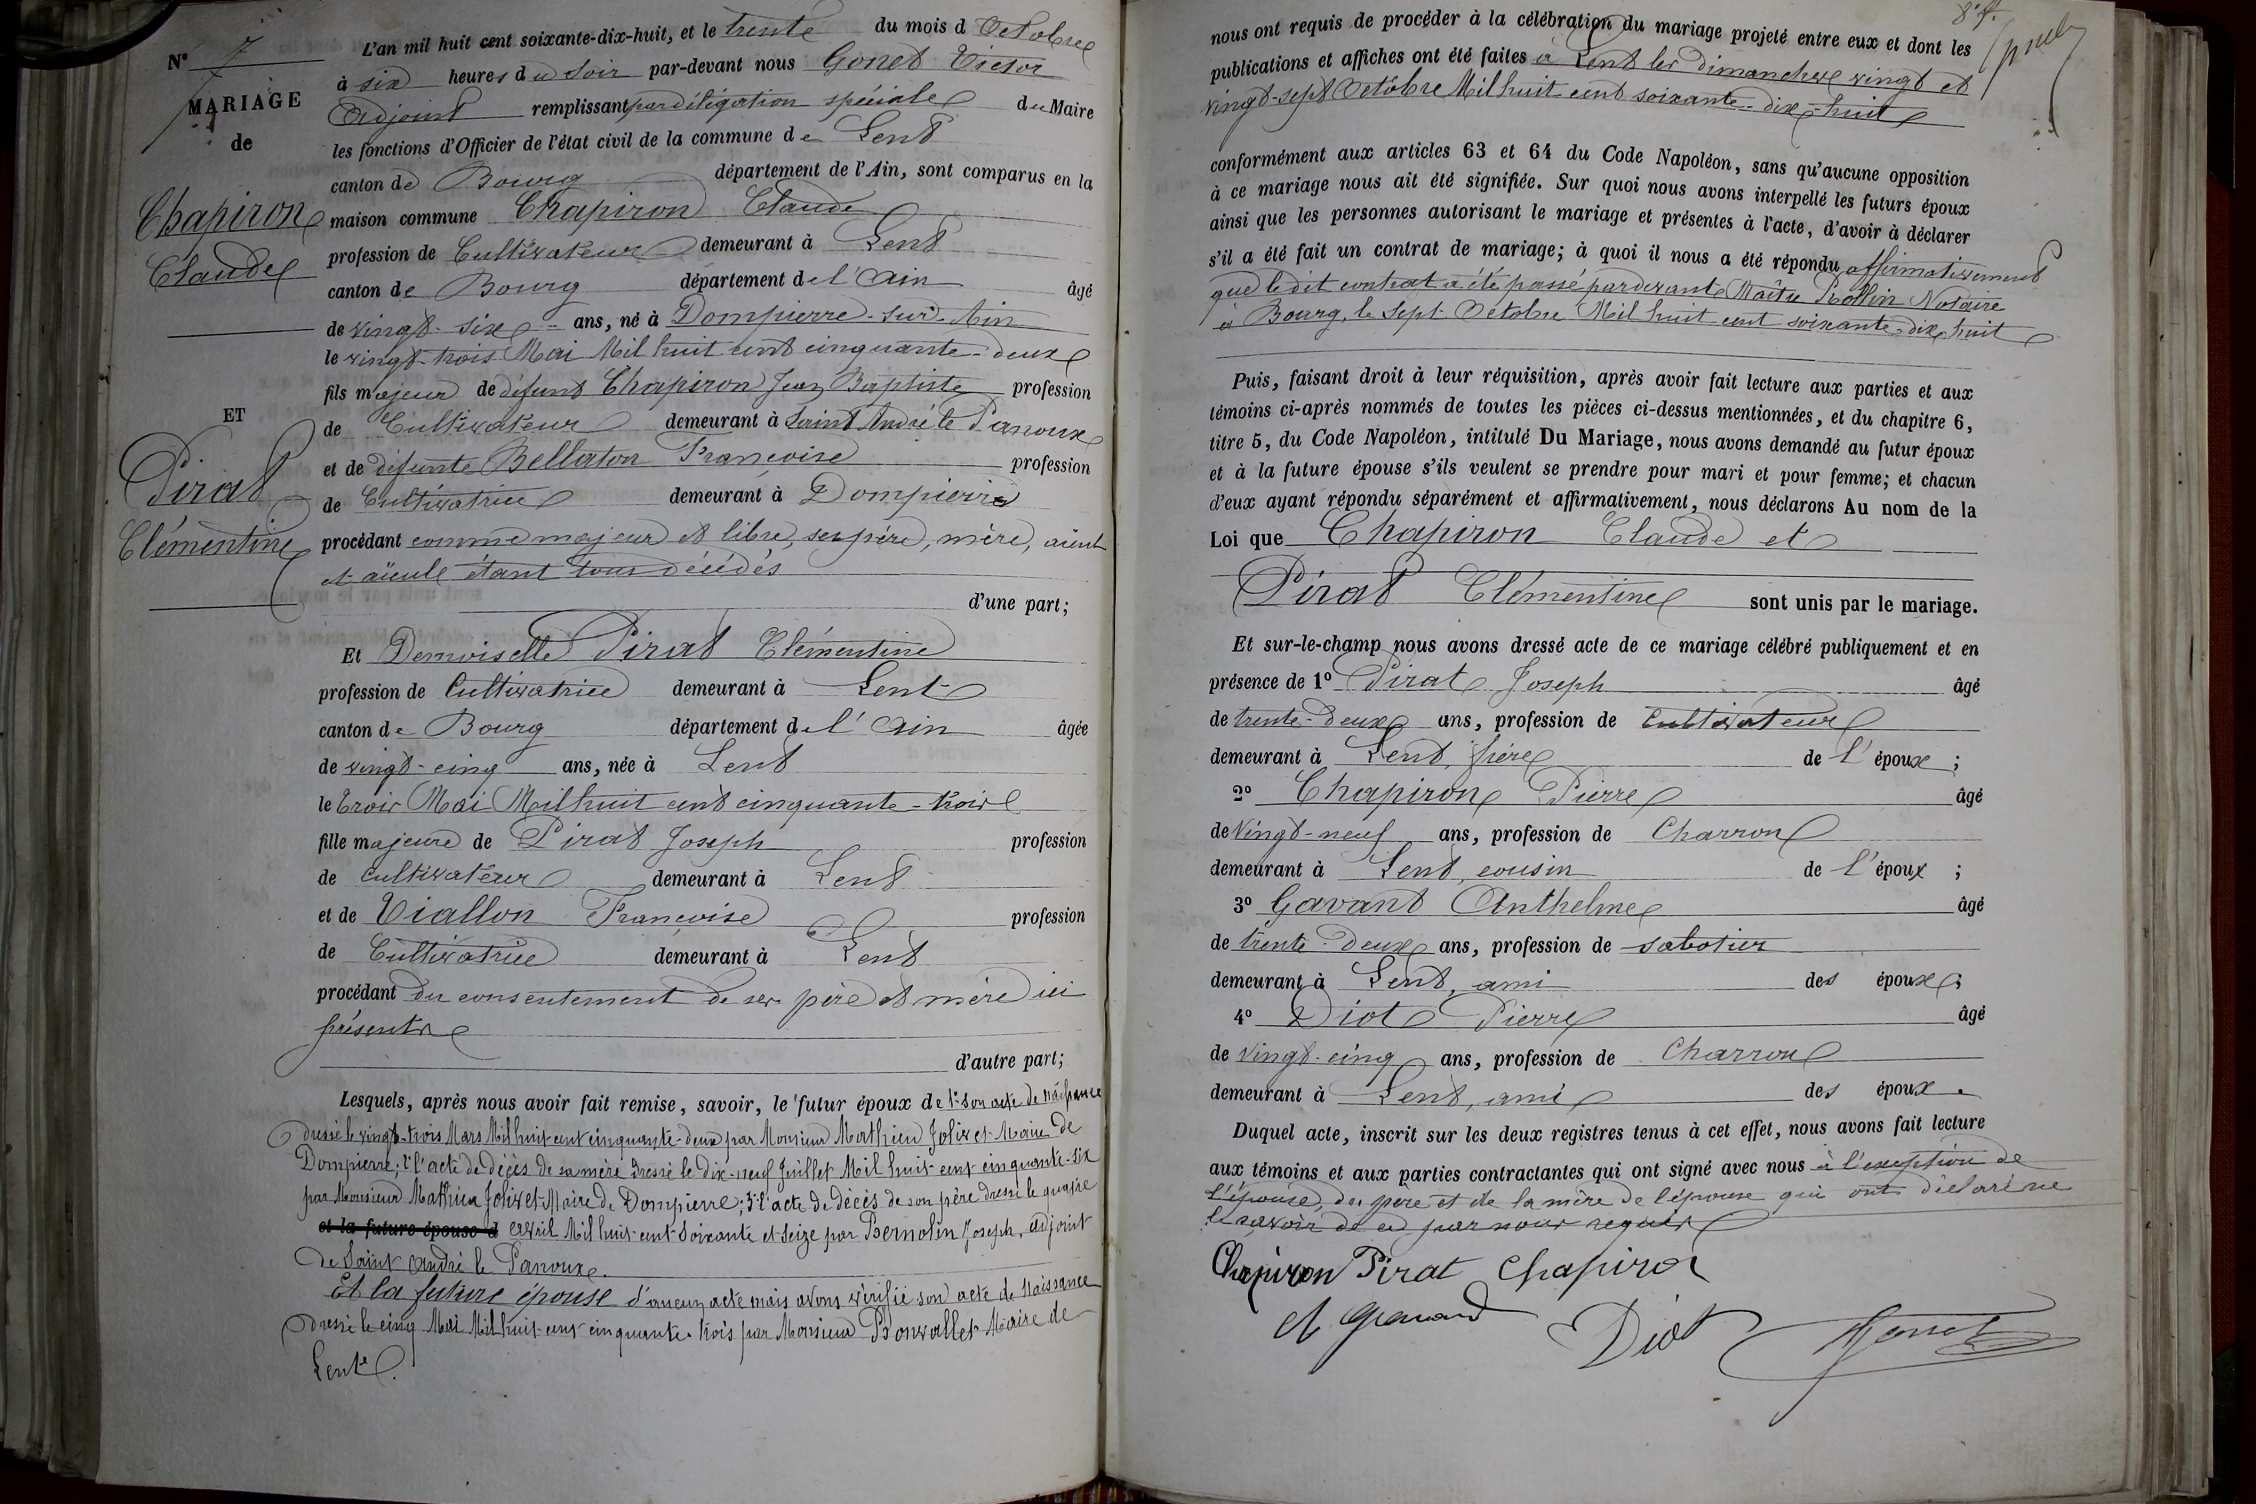 N° 7
MARIAGE
de
Chapiron
Claude
ET
Pirat
Clémentine
L'an mil huit cent soixante-dix-huit, et le trente du mois d Octobre
à six heures du soir par-devant nous Gonet Victor
Adjoint remplissant par délégation spéciale du Maire
les fonctions d'Officier de l'état civil de la commune de Lent
canton de Bourg département de l'Ain, sont comparus en la
maison commune Chapiron Claude
profession de Cultivateur demeurant à Lent
canton de Bourg département de l'Ain âgé
de vingt-six ans, né à Dompierre-sur-Ain
le vingt-trois Mai Mil huit cent cinquante-deux
fils majeur de défunt Chapiron Jean Baptiste profession
de Cultivateur demeurant à Saint André le Panoux
et de défunte Bellaton Françoise profession
de Cultivatrice demeurant à Dompierre
procédant comme majeur et libre, ses père, mère, aïeul
et aïeule étant tous décédés
d'une part;
Et Demoiselle Pirat Clémentine
profession de Cultivatrice demeurant à Lent
canton de Bourg département de l'Ain âgée
de vingt-cinq ans, née à Lent
le Trois Mai Mil huit cent cinquante-trois
fille majeure de Pirat Joseph profession
de Cultivateur demeurant à Lent
et de Viallon Françoise profession
de Cultivatrice demeurant à Lent
procédant du consentement de ses père et mère ici
présents
d'autre part;
Lesquels, après nous avoir fait remise, savoir, le futur époux de 1° son acte de naissance
dressé le vingt-trois Mars Mil huit cent cinquante-deux par Monsieur Mathieu Jolivet Maire de
Dompierre; 2° l'acte de décès de sa mère dressé le dix-neuf Juillet Mil huit cent cinquante-six
par Monsieur Mathieu Jolivet Maire de Dompierre; 3° l'acte de décès de son père dressé le quatre
et la future épouse d avril Mil huit cent soixante et seize par Bernolin Joseph, adjoint
de Saint André le Panoux.
Et la future épouse d'aucun acte mais avons vérifié son acte de naissance
dressé le cinq Mai Mil huit cent cinquante-trois par Monsieur Bonvallet Maire de
Lent.
8° f.
nous ont requis de procéder à la célébration du mariage projeté entre eux et dont les
publications et affiches ont été faites à Lent les dimanches vingt et
vingt-sept Octobre Mil huit cent soixante-dix-huit
conformément aux articles 63 et 64 du Code Napoléon, sans qu'aucune opposition
à ce mariage nous ait été signifiée. Sur quoi nous avons interpellé les futurs époux
ainsi que les personnes autorisant le mariage et présentes à l'acte, d'avoir à déclarer
s'il a été fait un contrat de mariage; à quoi il nous a été répondu affirmativement
que ledit contrat a été passé pardevant Maître Rollin Notaire
à Bourg, le sept Octobre Mil huit cent soixante-dix-huit
Puis, faisant droit à leur réquisition, après avoir fait lecture aux parties et aux
témoins ci-après nommés de toutes les pièces ci-dessus mentionnées, et du chapitre 6,
titre 5, du Code Napoléon, intitulé Du Mariage, nous avons demandé au futur époux
et à la future épouse s'ils veulent se prendre pour mari et pour femme; et chacun
d'eux ayant répondu séparément et affirmativement, nous déclarons Au nom de la
Loi que Chapiron Claude et
Pirat Clémentine sont unis par le mariage.
Et sur-le-champ nous avons dressé acte de ce mariage célébré publiquement et en
présence de 1° Pirat Joseph âgé
de trente-deux ans, profession de Cultivateur
demeurant à Lent, frère de l'épouse;
2° Chapiron Pierre âgé
de Vingt-neuf ans, profession de Charron
demeurant à Lent, cousin de l'époux;
3° Gavant Anthelme âgé
de trente-deux ans, profession de sabotier
demeurant à Lent, ami des époux;
4° Diot Pierre âgé
de Vingt-cinq ans, profession de Charron
demeurant à Lent, ami des époux.
Duquel acte, inscrit sur les deux registres tenus à cet effet, nous avons fait lecture
aux témoins et aux parties contractantes qui ont signé avec nous à l'exception de
l'épouse, du père et de la mère de l'épouse qui ont déclaré ne
le savoir de ce par nous requis
Chapiron Pirat Chapiron
Diot Gonet